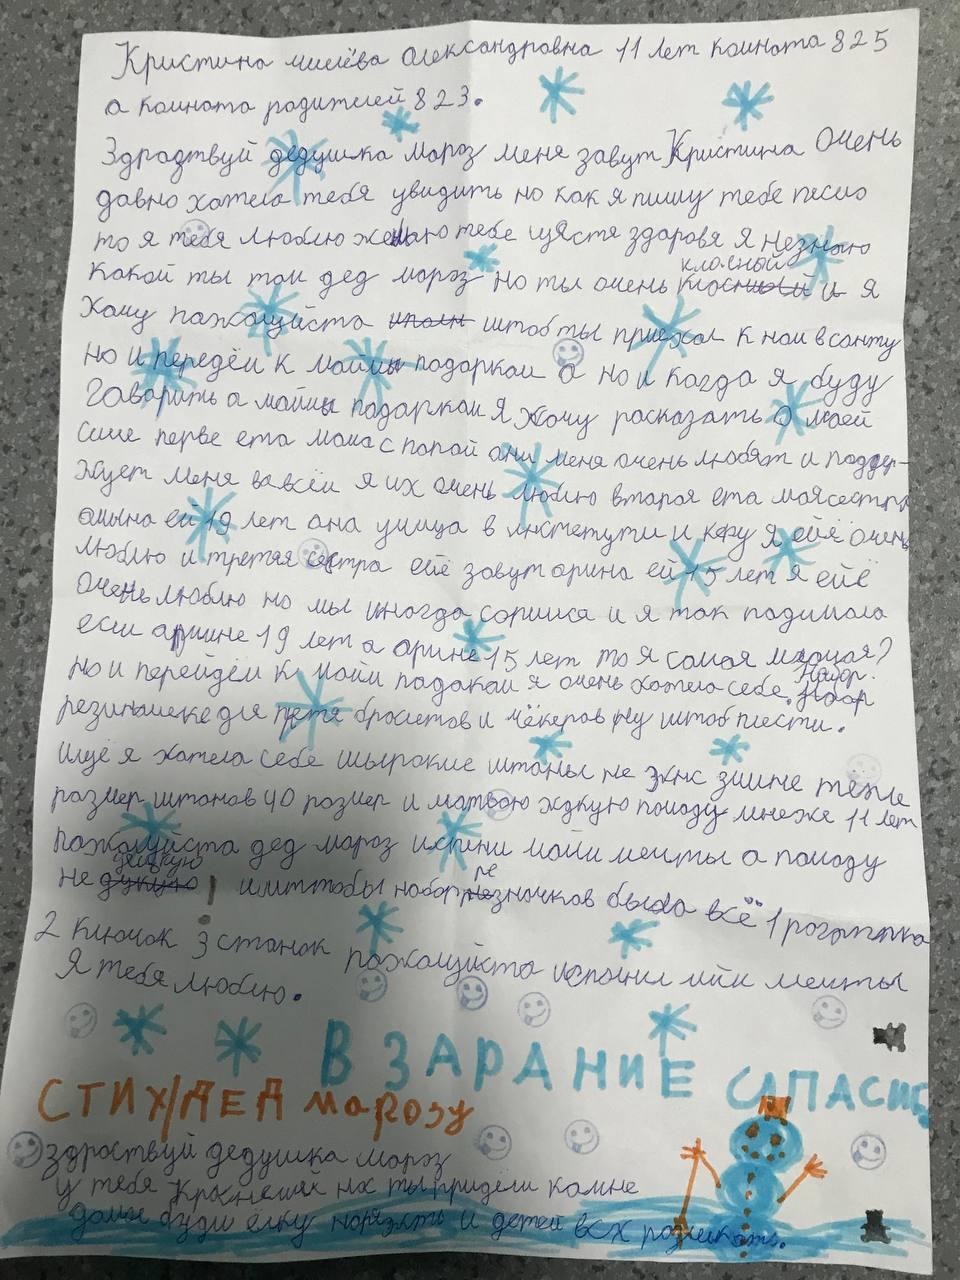 Кристина Александровна 11 лет комната 825
а комната родителей 823.
Здрадтвуй дедушка мороз меня завут Кристина Очень
давно хотела тебя увидить но как я пишу тебе писмо
то я тебя люблю желаю тебе щястя здаровя Я незнаю
какой ты там дед мороз но ты очень класный я
Хочу пажалуйста штоб ты приехал к нам в санту
но и передём к маймы подаркам а но и когда я буду
Гаварить а маймы подаркам Я Хочу расказать о маей
перве ета мама с папой они меня очень любят и поддер-
жует меня вавсём я их очень люблю вторая ета моя сестра
ей 19 лет ана в и кфу Я ейё очень
люблю и третяя сестра ейё завут арина ей 15 лет я ейё
очень люблю но мы иногда соримся и я так падимала
если 19 лет а арине 15 лет то я самая младшая?
но и перейдём к майм падакам я очень хотела себе. Набор
для браслетов и чёкеров ну штоб плести.
ищё я хатела себе шырокие штаны не зимне тёпле
размер штанов 40 розмер и матваю ждкую памаду мнеже 11 лет
пажалуйста дед мороз майи мечты а памаду
не дешкую! имттобы набор незначков было всё 1 рогатка
2 Ключок 3 станок пажалуйста мечты
Я тебя люблю.
В ЗАРАНИЕ САПАСИБ
СТИХ/ДЕД МАРОЗУ
здраствуй дедушка мороз
у тебя нас ты придёш камне
дамы будш ёлку наряжть и детей всх